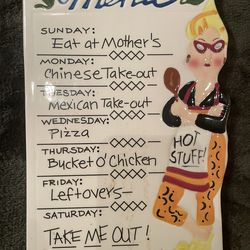 Menu
SUNDAY:
Eat at Mother's
MONDAY:
Chinese Take-out
TUESDAY:
Mexican Take-out
WEDNESDAY:
Pizza
THURSDAY:
Bucket O'Chicken
FRIDAY:
Leftovers—
SATURDAY:
TAKE ME OUT!
HOT
STUFF!